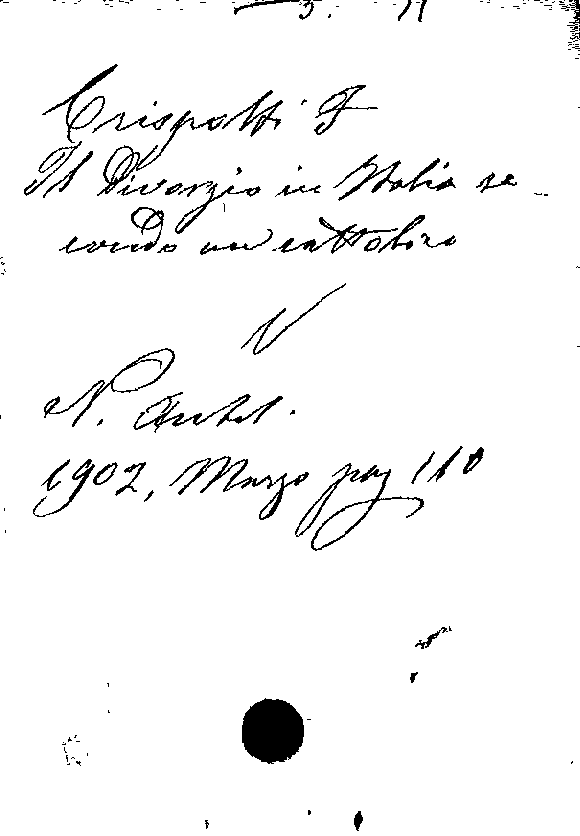 Crispolti F
Il Divorzio in Italia se-
condo un cattolico
V
N. Antol.
1902, Marzo pag 110